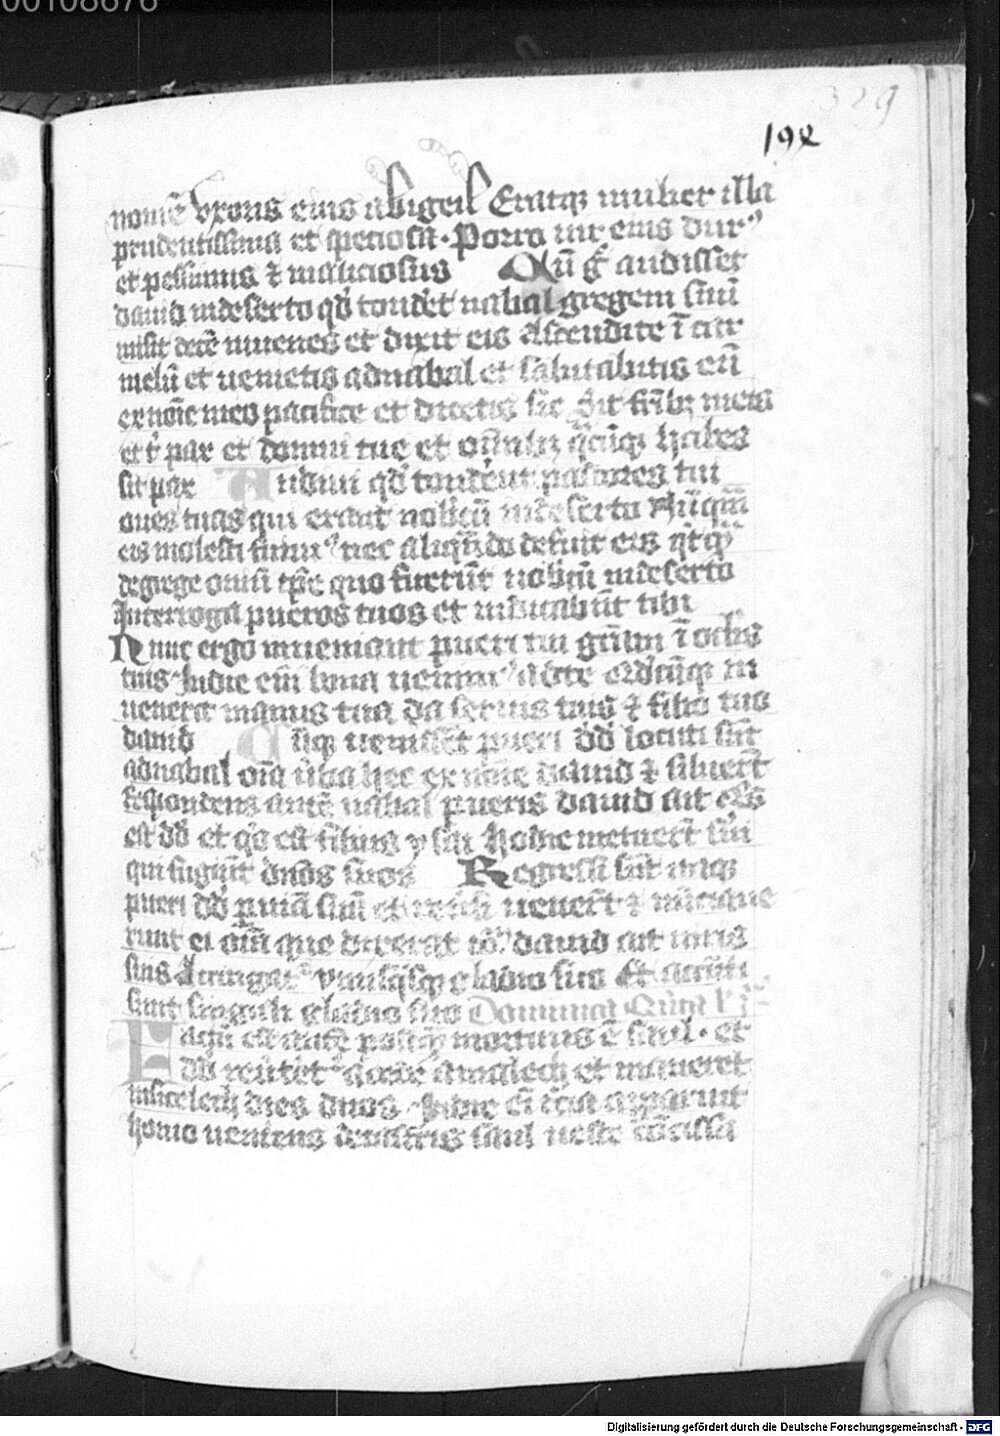 00108676
329
192
nomē vxoris eius abigeil Eratqȝ mulier illa
prudentissima et speciosa · Porro uir eius dur⁹
et pessimus ⁊ maliciosus Cū gͦ audisset
dauid indeserto qd̕ tonderet nabal gregem suū
misit decē iuuenes et dixit eis Ascendite ī car
melū et uenietis adnabal et salutabitis eū
ex noīe meo pacifice et dicetis sic Sit fr̄ibȝ meis
et t̕ pax et domui tue et oībȝ q̄cūqȝ habes
sit pax Audiui qd̕ tonderent pastores tui
oues tuas qui erant nobcū indeserto Nūqm̄
eis molesti fuim⁹ nec aliqn̄do defuit eis
degrege omī tp̄e quo fuerūt nobcū indeserto
Interroga pueros tuos et indicabūt tibi
Nunc ergo inueniant pueri tui grām ī oclīs
tuis Indie em̄ bona uenim⁹ qdcūqȝ in
uenerit manus tua da seruis tuis ⁊ filio tuo
dauid Cūqȝ uenissēt pueri dd̕ locuti sūt
adnabal oīa ūba hec ex noīe dauid ⁊ siluert̄
Respondens autē nabal pueris dauid ait Quis
est dd̕ et qs̕ est filius ysai hodie creuert̄ sui
qui fugiūt dnos suos Regressi sūt itaqȝ
pueri dd̕ p uiā suā et reūsi uenert̄ ⁊ nūciaue
runt ei oīa que dixerat tūc dauid ait uiris
suis Accingat᷑ vnusqsqȝ gladio suo Et accīcti
sunt singuli gladio suo Dominica Quīta
Factū est autē postqȝ mortuus ē saul · et
dd̕ reūtet᷑ acede amalech et maneret
insicelech dies duos · Indie aū tcia apparuit
homo ueniens decastris saul ueste cōcissa
Digitalisierung gefördert durch die Deutsche Forschungsgemeinschaft - DFG